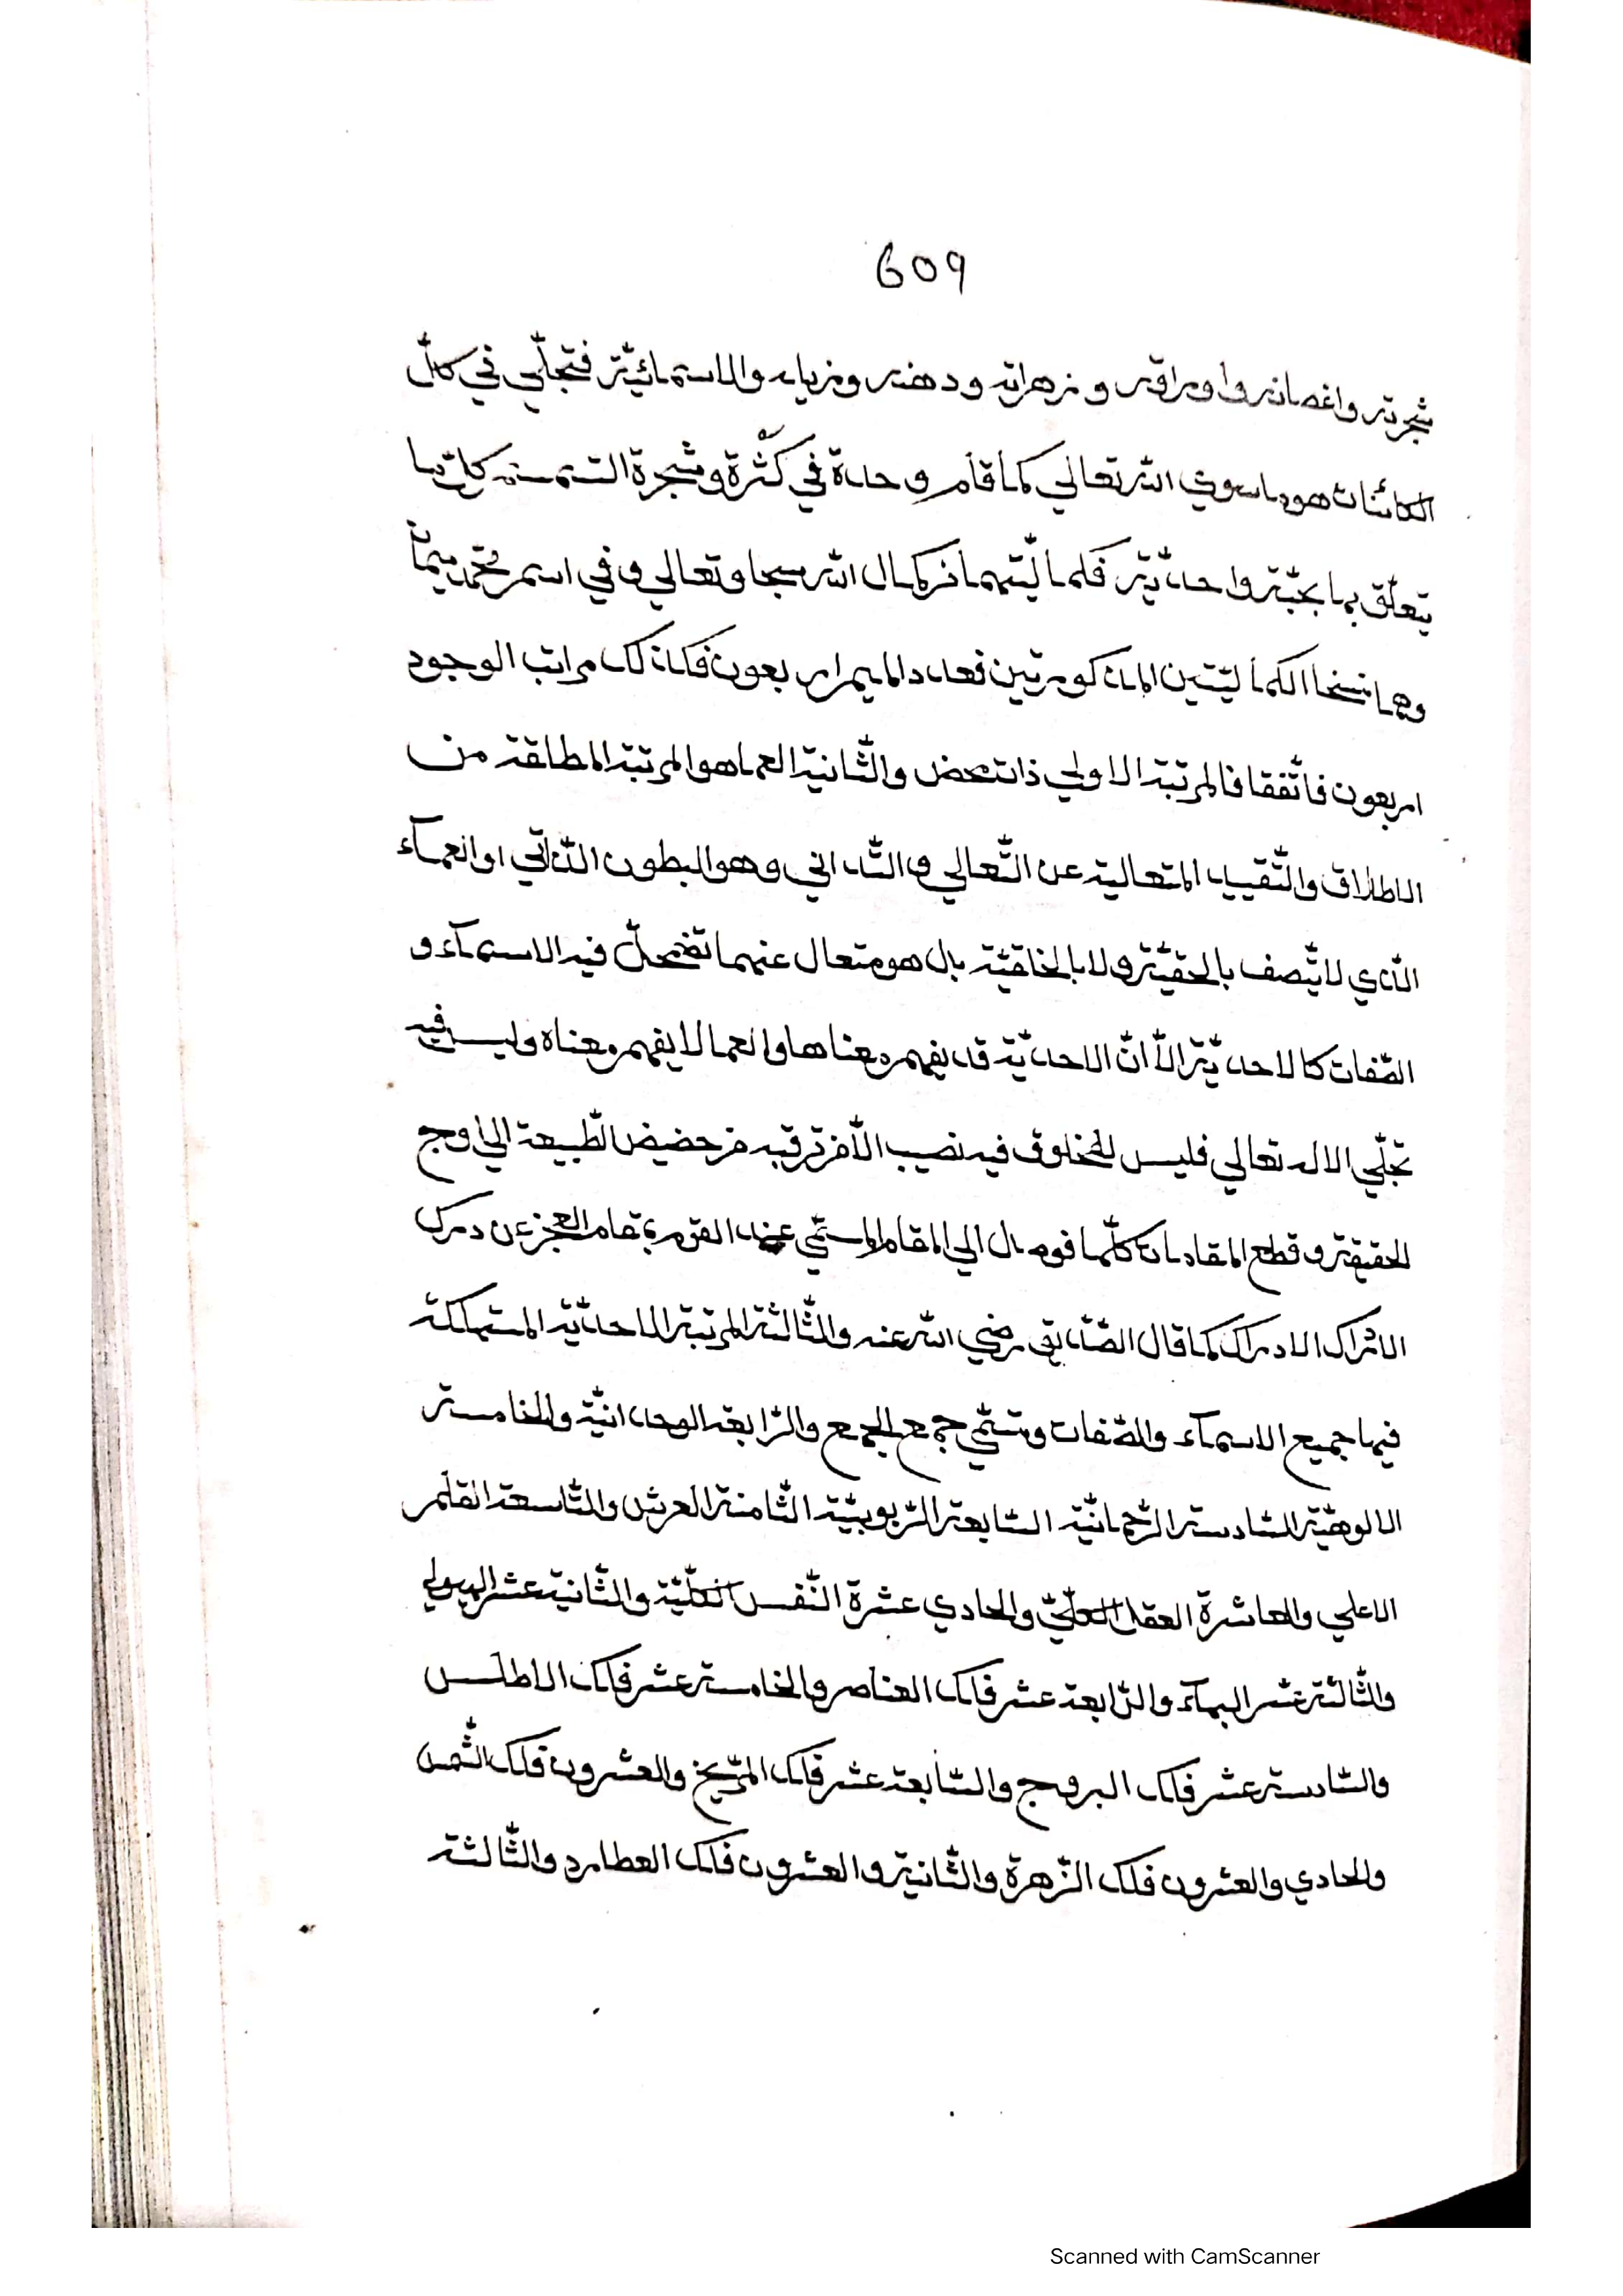 609
شجرته واغصانه واوراقه وزهراته ودهنه وزياده والاسمائيّة فتجلّي في كلّ
الكائنات هو ما سوي الله تعالي كما قام وحدة في كثرة وشجرة السّمسمة كلّ ما
يتعلّق بها بحبّة واحديّة فكماليّتهما من كمال الله سبحا وتعالي وفي اسم محمّد ميمان
وهما نسخا الكماليّتين المذكورتين فعدد الميم اربعون فكذلك مراتب الوجود
اربعون فاتّفقا فالمرتبة الاولي ذات محض والثّانية العما هو المرتبة المطلقة من
الاطلاق والتّقييد المتعالية عن التّعالي والتّداني وهو البطون الذّاتي او العمآء
الذي لا يتّصف بالحقيّة ولا بالخلقيّة بل هو متعال عنهما تضمحلّ فيه الاسمآء و
الصّفات كالاحديّة الاّ انّ الاحديّة قد يفهم معناها والعما لا يفهم معناه وليس فيه
تجلّي الاله تعالي فليس للمخلوق فيه نصيب الاّ من ترقيه من حضيض الطّبيعة الي اوج
الحقيقة وقطع المقامات كلّها فوصل الي المقام المسمّي عند القوم بمقام العجز عن درك
الاتراك الادراك كما قال الصّدّيق رضي الله عنه والثّالثة المرتبة الاحديّة المستهلكة
فيها جميع الاسمآء والصّفات وتسمّي جمع الجمع والرّابعة الوحدانيّة والخامسة
الالوهيّة السّادسة الرّحمانيّة السّابعة الرّبوبيّة الثّامنة العرش والتّاسعة القلم
الاعلي والعاشرة العقل الكلّيّ والحادي عشرة النّفس الكلّيّة والثّانية عشر الهيولي
والثّالثة عشر الهبآء والرّابعة عشر فلك العناصر والخامسة عشر فلك الاطلس
والسّادسة عشر فلك البروج والسّابعة عشر فلك المرّيخ والعشرون فلك الشّمس
والحادي والعشرون فلك الزّهرة والثّانية والعشرون فلك العطارد والثّالثة
Scanned with CamScanner